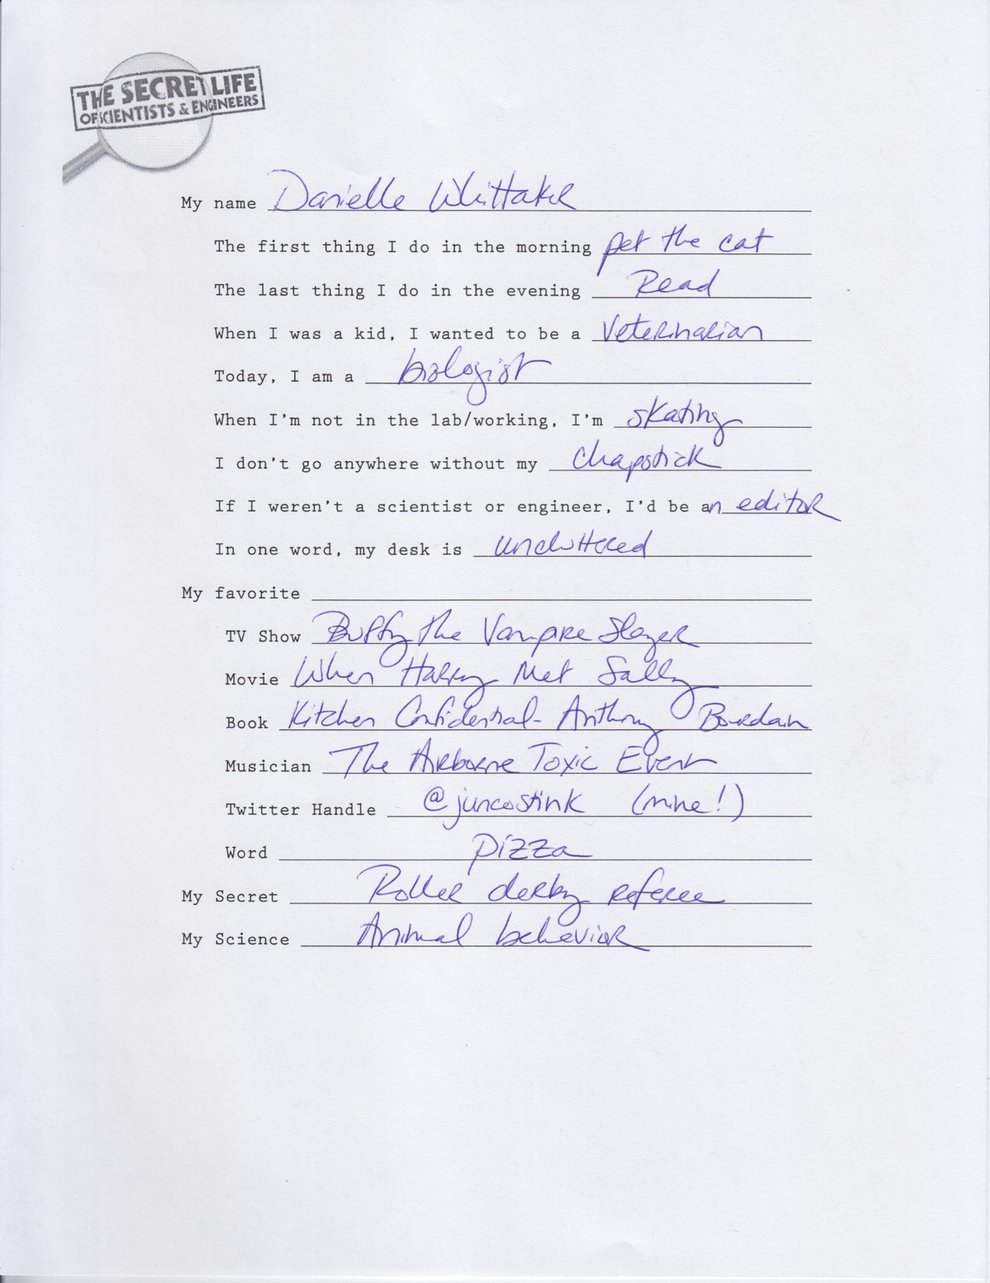 THE SECRET LIFE
OF SCIENTISTS & ENGINEERS
My name Danielle Whittaker
The first thing I do in the morning pet the cat
The last thing I do in the evening Read
When I was a kid, I wanted to be a Veterinarian
Today, I am a biologist
When I'm not in the lab/working, I'm skating
I don't go anywhere without my chapstick
If I weren't a scientist or engineer, I'd be an editor
In one word, my desk is uncluttered
My favorite
TV Show Buffy the Vampire Slayer
Movie When Harry Met Sally
Book Kitchen Confidential - Anthony Bourdain
Musician The Airborne Toxic Event
Twitter Handle @juncostink (mine!)
Word pizza
My Secret Roller derby referee
My Science Animal behavior